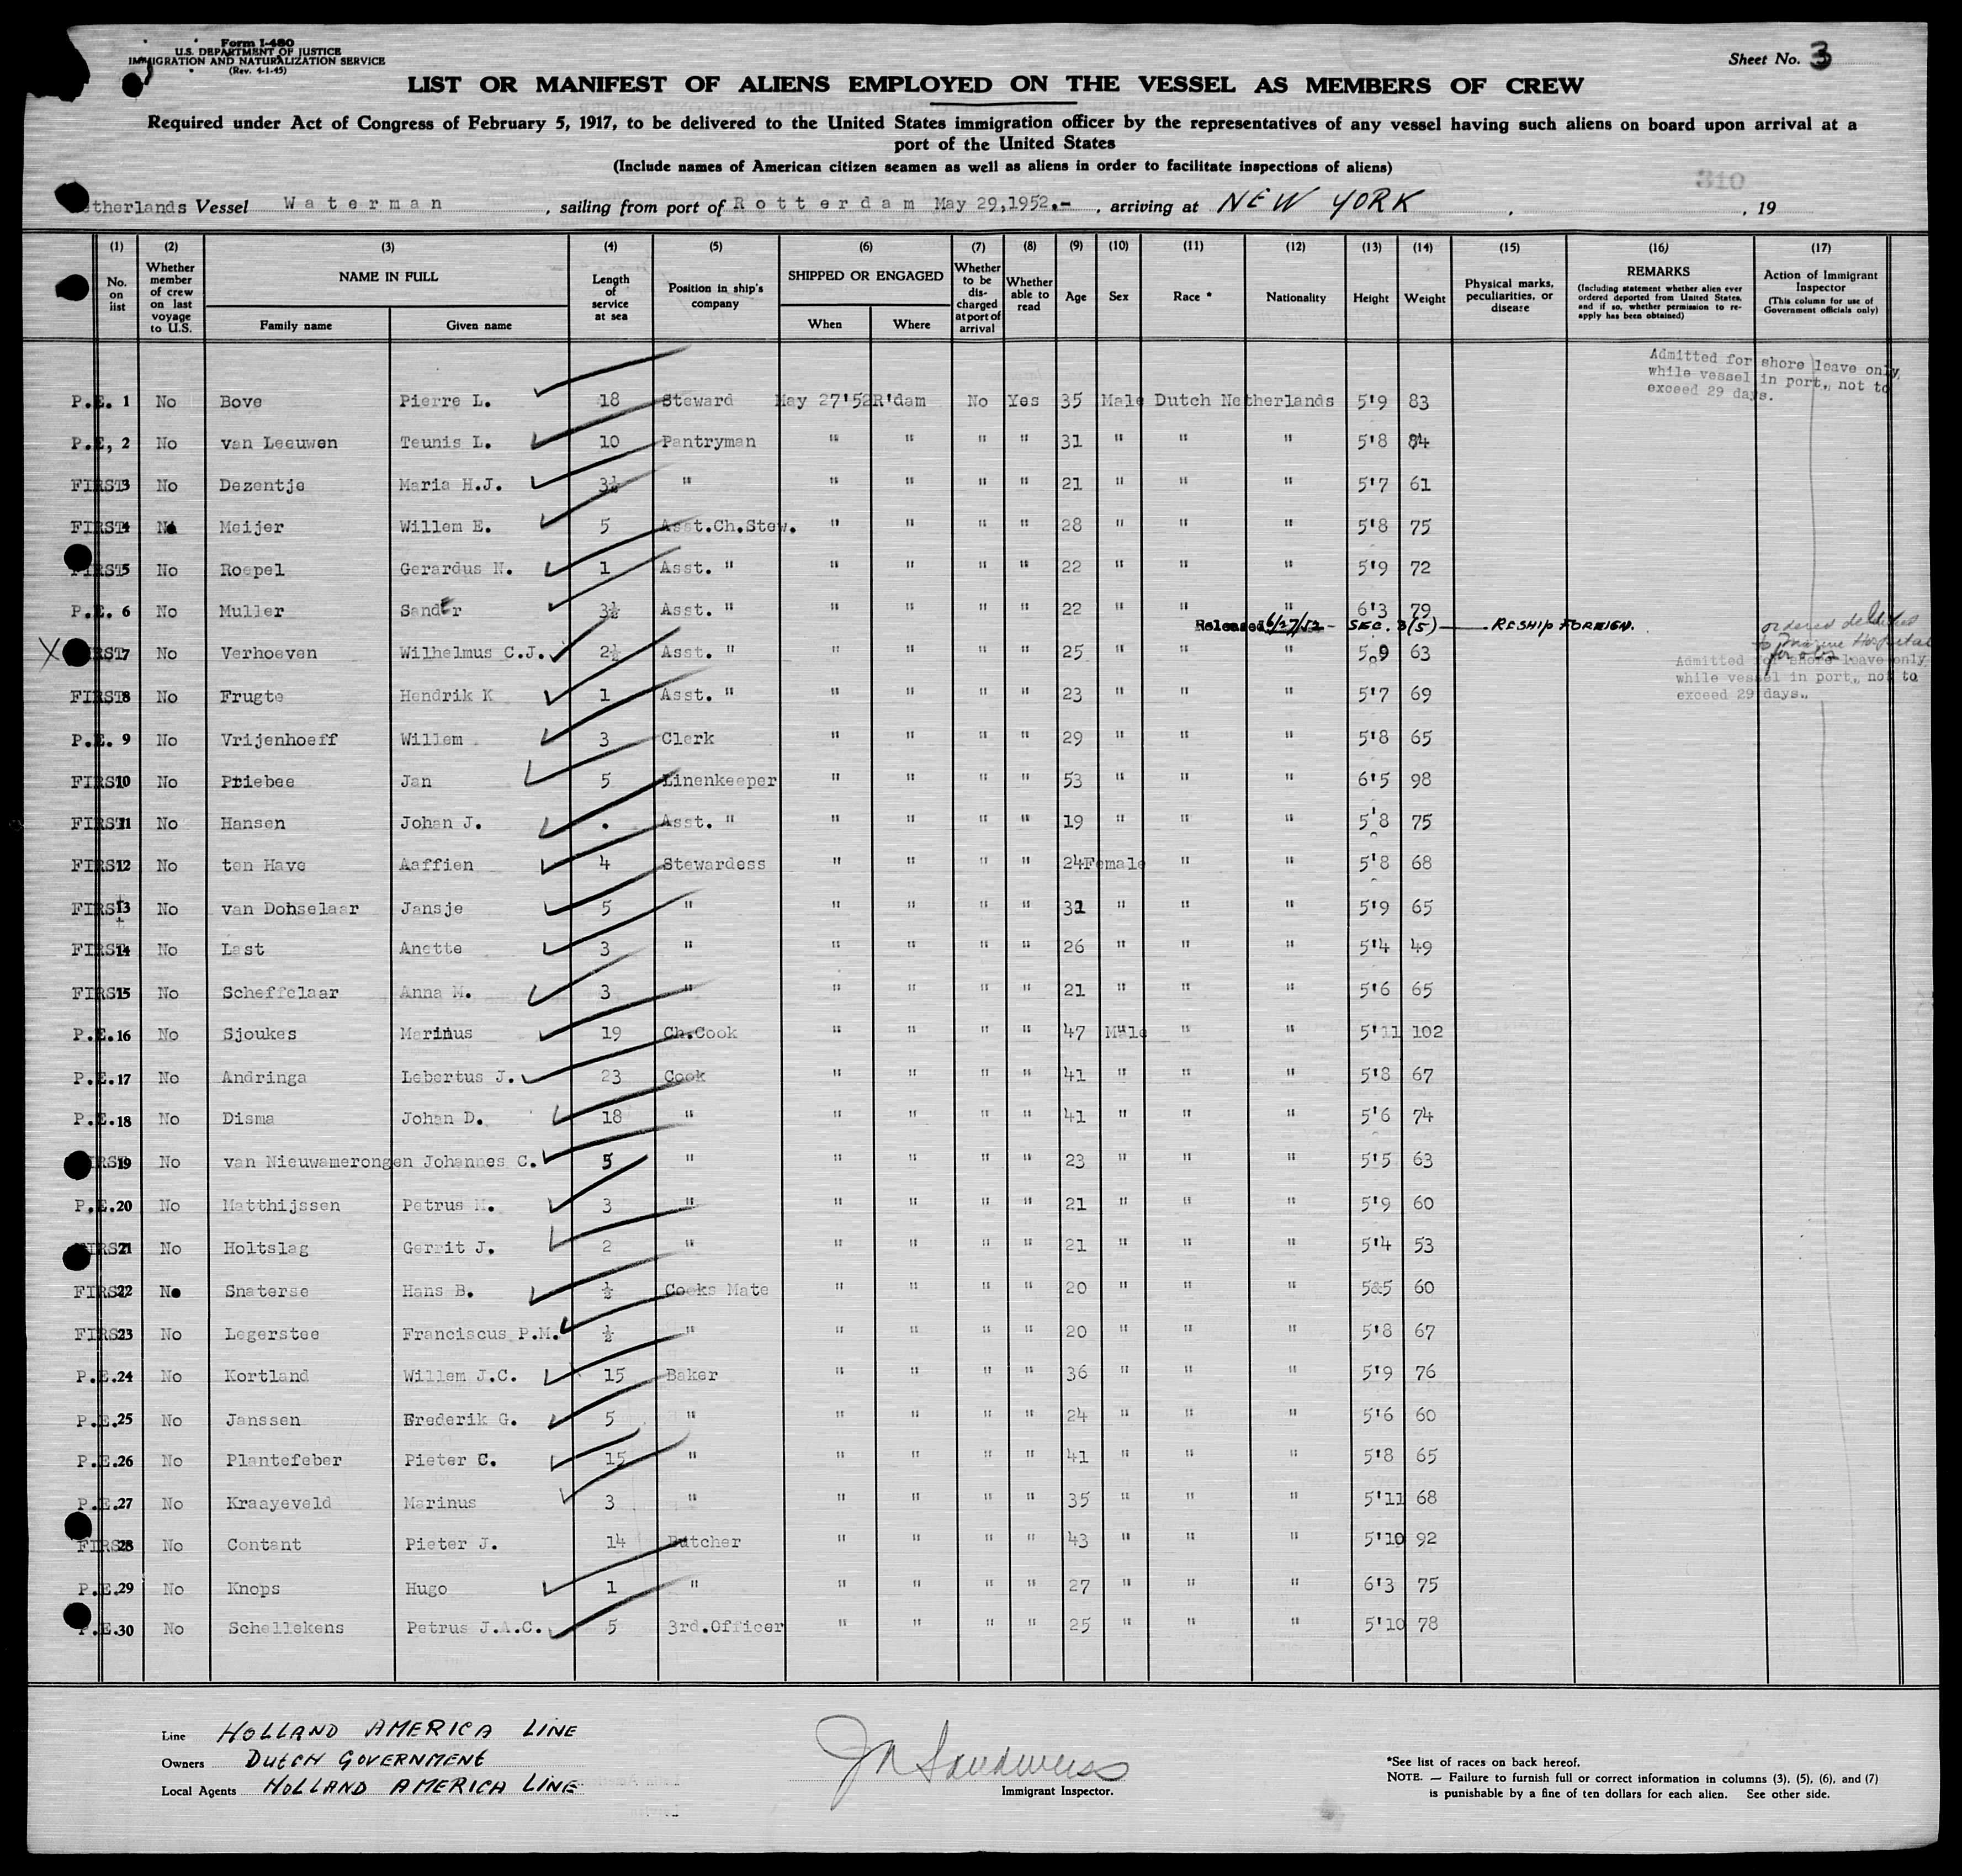 Form I-480
U.S. DEPARTMENT OF JUSTICE
IMMIGRATION AND NATURALIZATION SERVICE
(Rev. 4-1-45)
Sheet No. 3
LIST OR MANIFEST OF ALIENS EMPLOYED ON THE VESSEL AS MEMBERS OF CREW
Required under Act of Congress of February 5, 1917, to be delivered to the United States immigration officer by the representatives of any vessel having such aliens on board upon arrival at a
port of the United States
(Include names of American citizen seamen as well as aliens in order to facilitate inspections of aliens)
310
etherlands Vessel Waterman, sailing from port of Rotterdam May 29,1952.-, arriving at NEW YORK, , 19
(1) (2) (3) (4) (5) (6) (7) (8) (9) (10) (11) (12) (13) (14) (15) (16) (17)
No. on list
Whether member of crew on last voyage to U.S.
NAME IN FULL
Family name Given name
Length of service at sea
Position in ship's company
SHIPPED OR ENGAGED
When Where
Whether to be discharged at port of arrival
Whether able to read
Age
Sex
Race *
Nationality
Height
Weight
Physical marks, peculiarities, or disease
REMARKS
(Including statement whether alien ever ordered deported from United States, and if so, whether permission to re-apply has been obtained)
Action of Immigrant Inspector
(This column for use of Government officials only)
Admitted for shore leave only
while vessel in port, not to
exceed 29 days.
P.E. 1 No Bove Pierre L. 18 Steward May 27'52 R'dam No Yes 35 Male Dutch Netherlands 5'9 83
P.E, 2 No van Leeuwen Teunis L. 10 Pantryman " " " " 31 " " " 5'8 84
FIRST 3 No Dezentje Maria H.J. 3½ " " " " " 21 " " " 5'7 61
FIRST 4 No Meijer Willem E. 5 Asst.Ch.Stew. " " " " 28 " " " 5'8 75
FIRST 5 No Roepel Gerardus N. 1 Asst. " " " " " 22 " " " 5'9 72
P.E. 6 No Muller Sander 3½ Asst. " " " " " 22 " " " 6'3 79
Released 6/27/52 - SEC. 3(5) — RESHIP FOREIGN.
ordered
to Marine Hospital
for obs.
X RST 7 No Verhoeven Wilhelmus C.J. 2½ Asst. " " " " " 25 " " " 5 9 63
Admitted for shore leave only
while vessel in port, not to
exceed 29 days.
FIRST 8 No Frugte Hendrik K 1 Asst. " " " " " 23 " " " 5'7 69
P.E. 9 No Vrijenhoeff Willem 3 Clerk " " " " 29 " " " 5'8 65
FIRST 10 No Priebee Jan 5 Linenkeeper " " " " 53 " " " 6'5 98
FIRST 11 No Hansen Johan J. . Asst. " " " " " 19 " " " 5'8 75
FIRST 12 No ten Have Aaffien 4 Stewardess " " " " 24 Female " " 5'8 68
FIRST 13 No van Donselaar Jansje 5 " " " " " " " " 5'9 65
FIRST 14 No Last Anette 3 " " " " " 26 " " " 5'4 49
FIRST 15 No Scheffelaar Anna M. 3 " " " " " 21 " " " 5'6 65
P.E. 16 No Sjoukes Marinus 19 Ch.Cook " " " " 47 Male " " 5'11 102
P.E. 17 No Andringa Lebertus J. 23 Cook " " " " 41 " " " 5'8 67
P.E. 18 No Disma Johan D. 18 " " " " " 41 " " " 5'6 74
IRST 19 No van Nieuwamerongen Johannes C. 5 " " " " " 23 " " " 5'5 63
P.E. 20 No Matthijssen Petrus M. 3 " " " " " 21 " " " 5'9 60
IRST 21 No Holtslag Gerrit J. 2 " " " " " 21 " " " 5'4 53
FIRST 22 No Snaterse Hans B. ½ Cooks Mate " " " " 20 " " " 5&5 60
FIRST 23 No Legerstee Franciscus P.M. ½ " " " " " 20 " " " 5'8 67
P.E. 24 No Kortland Willem J.C. 15 Baker " " " " 36 " " " 5'9 76
P.E. 25 No Janssen Frederik G. 5 " " " " " 24 " " " 5'6 60
P.E. 26 No Plantefeber Pieter C. 15 " " " " " 41 " " " 5'8 65
P.E. 27 No Kraayeveld Marinus 3 " " " " " 35 " " " 5'11 68
FIRST 28 No Contant Pieter J. 14 Butcher " " " " 43 " " " 5'10 92
P.E. 29 No Knops Hugo 1 " " " " " 27 " " " 6'3 75
P.E. 30 No Schellekens Petrus J.A.C. 5 3rd.Officer " " " " 25 " " " 5'10 78
Line HOLLAND AMERICA LINE
Owners DUTCH GOVERNMENT
Local Agents HOLLAND AMERICA LINE
Immigrant Inspector.
*See list of races on back hereof.
NOTE. — Failure to furnish full or correct information in columns (3), (5), (6), and (7)
is punishable by a fine of ten dollars for each alien. See other side.